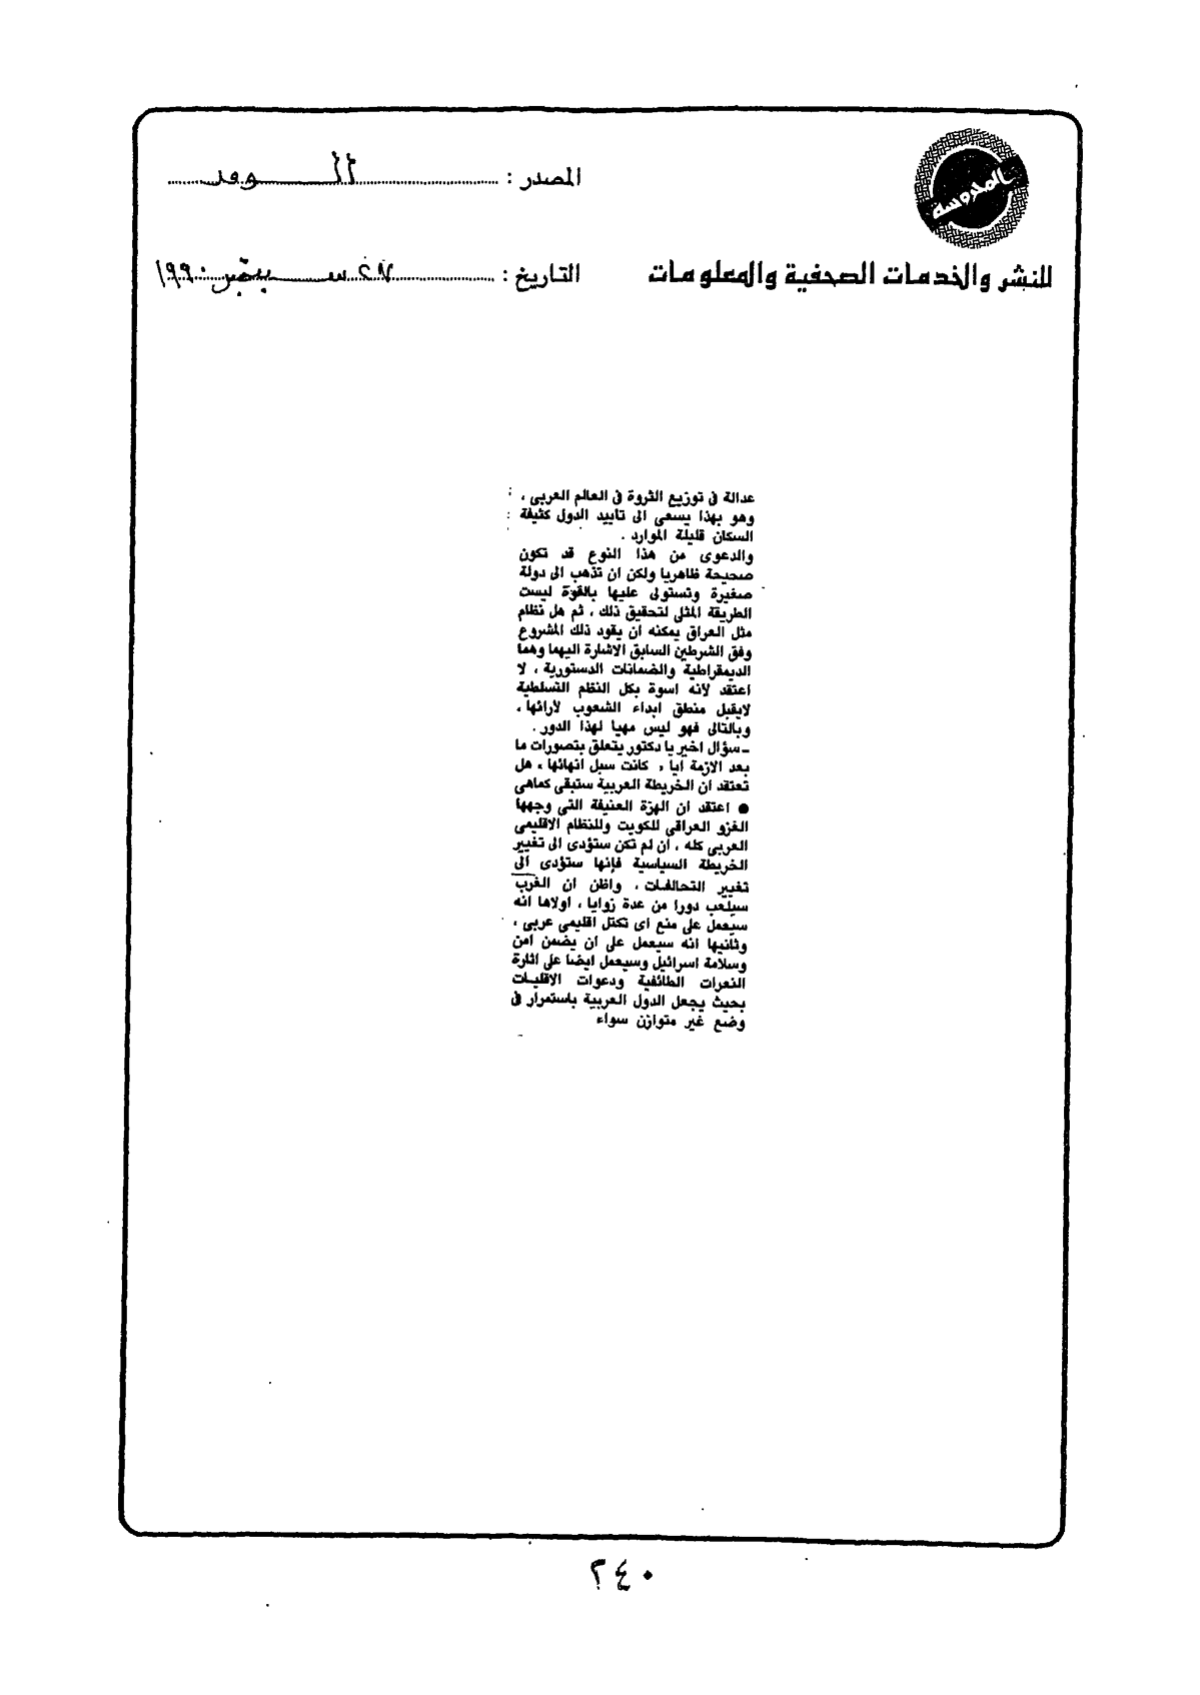 المحروسة
المصدر : الوفد
للنشر والخدمات الصحفية والمعلومات
التاريخ : ٢٧ سبتمبر ١٩٩٠
عدالة في توزيع الثروة في العالم العربي ،
وهو بهذا يسعى الى تاييد الدول كثيفة
السكان قليلة الموارد .
والدعوى من هذا النوع قد تكون
صحيحة ظاهريا ولكن ان تذهب الى دولة
صغيرة وتستولى عليها بالقوة ليست
الطريقة المثلى لتحقيق ذلك ، ثم هل نظام
مثل العراق يمكنه ان يقود ذلك المشروع
وفق الشرطين السابق الاشارة اليهما وهما
الديمقراطية والضمانات الدستورية ، لا
اعتقد لانه اسوة بكل النظم التسلطية
لايقبل منطق ابداء الشعوب لارائها ،
وبالتالى فهو ليس مهيا لهذا الدور .
ـ سؤال اخير يا دكتور يتعلق بتصورات ما
بعد الازمة ايا ، كانت سبل انهائها ، هل
تعتقد ان الخريطة العربية ستبقى كماهى
● اعتقد ان الهزة العنيفة التى وجهها
الغزو العراقى للكويت وللنظام الاقليمى
العربى كله ، ان لم تكن ستؤدى الى تغيير
الخريطة السياسية فإنها ستؤدى الى
تغيير التحالفات ، واظن ان الغرب
سيلعب دورا من عدة زوايا ، اولاها انه
سيعمل على منع اى تكتل اقليمى عربى ،
وثانيها انه سيعمل على ان يضمن امن
وسلامة اسرائيل وسيعمل ايضا على اثارة
النعرات الطائفية ودعوات الاقليات
بحيث يجعل الدول العربية باستمرار في
وضع غير متوازن سواء
٢٤٠